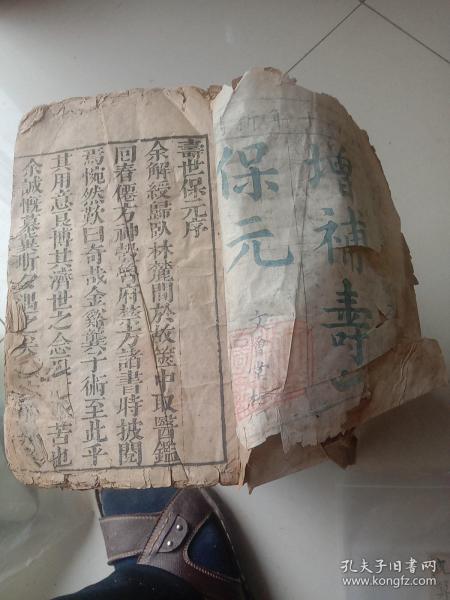 增補壽
保元
文會堂梓
壽世保元序
余解綬歸臥林麓間於故篋中取醫鑑
回春僊方神彀魯府禁方諸書時披閱
焉惋然歎曰奇哉金谿龔子術至此乎
其用意良博其濟世之念 苦也
余誠慨慕冀昕夕遇之矣
孔夫子旧书网
www.kongfz.com